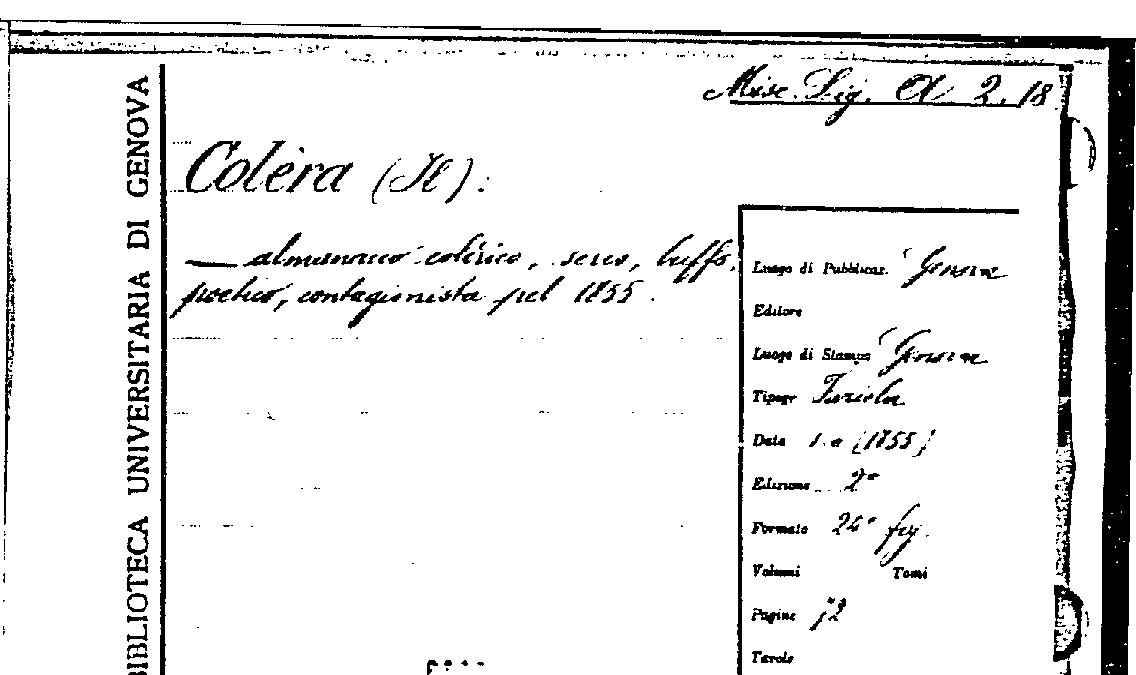 Misc. Lig. A 2. 18
BIBLIOTECA UNIVERSITARIA DI GENOVA
Colèra (Il):
— almanacco colèrico, serio, buffo,
poetico, contagionista pel 1855.
Luogo di Pubblicaz. Genova
Editore
Luogo di Stampa Genova
Tipogr
Data s. a (1855)
Edizione 2a
Formato 24° fig.
Volumi Tomi
Pagine 72
Tavole